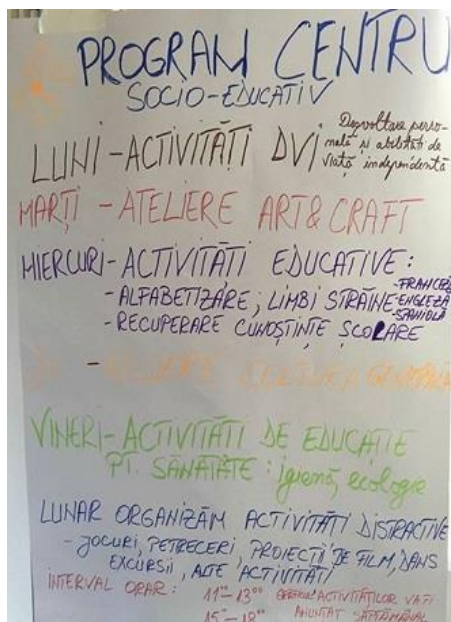 PROGRAM CENTRU
SOCIO-EDUCATIV
LUNI - ACTIVITĂȚI DVI Dezvoltare perso-
nală și abilități de
viață independentă
MARȚI - ATELIERE ART & CRAFT
MIERCURI - ACTIVITĂȚI EDUCATIVE:
- ALFABETIZARE; LIMBI STRĂINE - FRANCEZĂ
- ENGLEZĂ
- SPANIOLĂ
- RECUPERARE CUNOȘTINȚE ȘCOLARE
- CULTURĂ GENERALĂ
VINERI - ACTIVITĂȚI DE EDUCAȚIE
PT. SĂNĂTATE: igienă, ecologie
LUNAR ORGANIZĂM ACTIVITĂȚI DISTRACTIVE
- JOCURI, PETRECERI, PROIECȚII DE FILM, DANS
EXCURSII, ALTE ACTIVITĂȚI
INTERVAL ORAR: 11⁰⁰ - 13⁰⁰ ACTIVITĂȚILOR VA FI
15⁰⁰ - 18⁰⁰ ANUNȚAT SĂPTĂMÂNAL